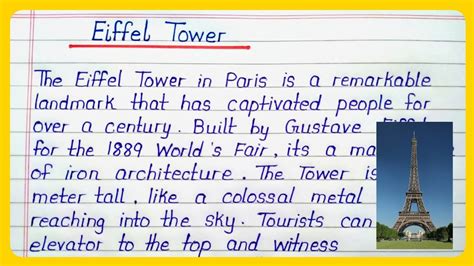 Eiffel Tower
The Eiffel Tower in Paris is a remarkable
landmark that has captivated people for
over a century. Built by Gustave
for the 1889 World's Fair, its a
of iron architecture. The Tower is
meter tall, like a colossal metal
reaching into the sky. Tourists can
elevator to the top and witness